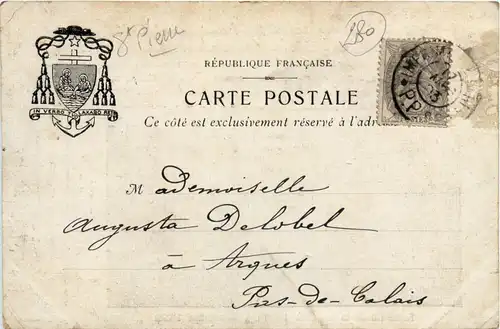 St Pierre
180
RÉPUBLIQUE FRANÇAISE
CARTE POSTALE
Ce côté est exclusivement réservé à l'adre
IN VERBO TUO LAXABO RETE
Mademoiselle
Augusta Delobel
à Arques
Pas-de-Calais